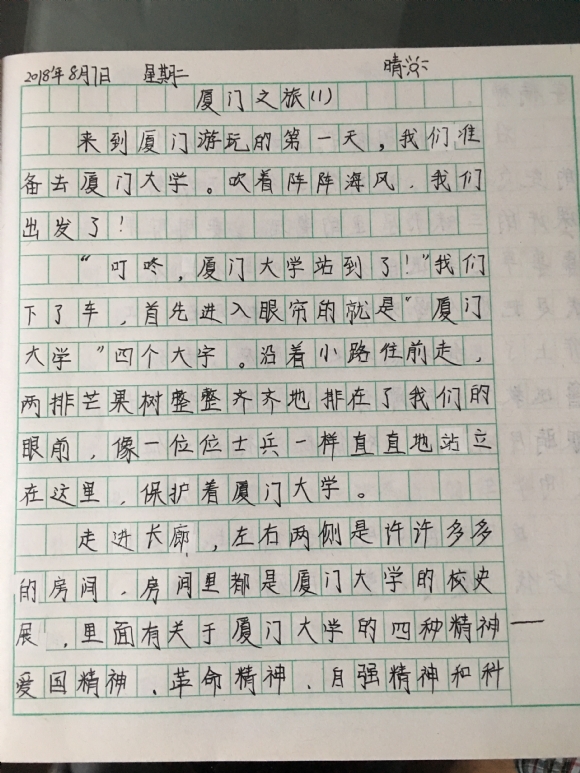 2018年8月7日 星期二 晴
厦门之旅(1)
来到厦门游玩的第一天，我们准
备去厦门大学。吹着阵阵海风，我们
出发了！
“叮咚，厦门大学站到了！”我们
下了车，首先进入眼帘的就是“厦门
大学”四个大字。沿着小路往前走，
两排芒果树整整齐齐地排在了我们的
眼前，像一位位士兵一样直直地站立
在这里，保护着厦门大学。
走进长廊，左右两侧是许许多多
的房间，房间里都是厦门大学的校史
展，里面有关于厦门大学的四种精神——
爱国精神、革命精神、自强精神和科